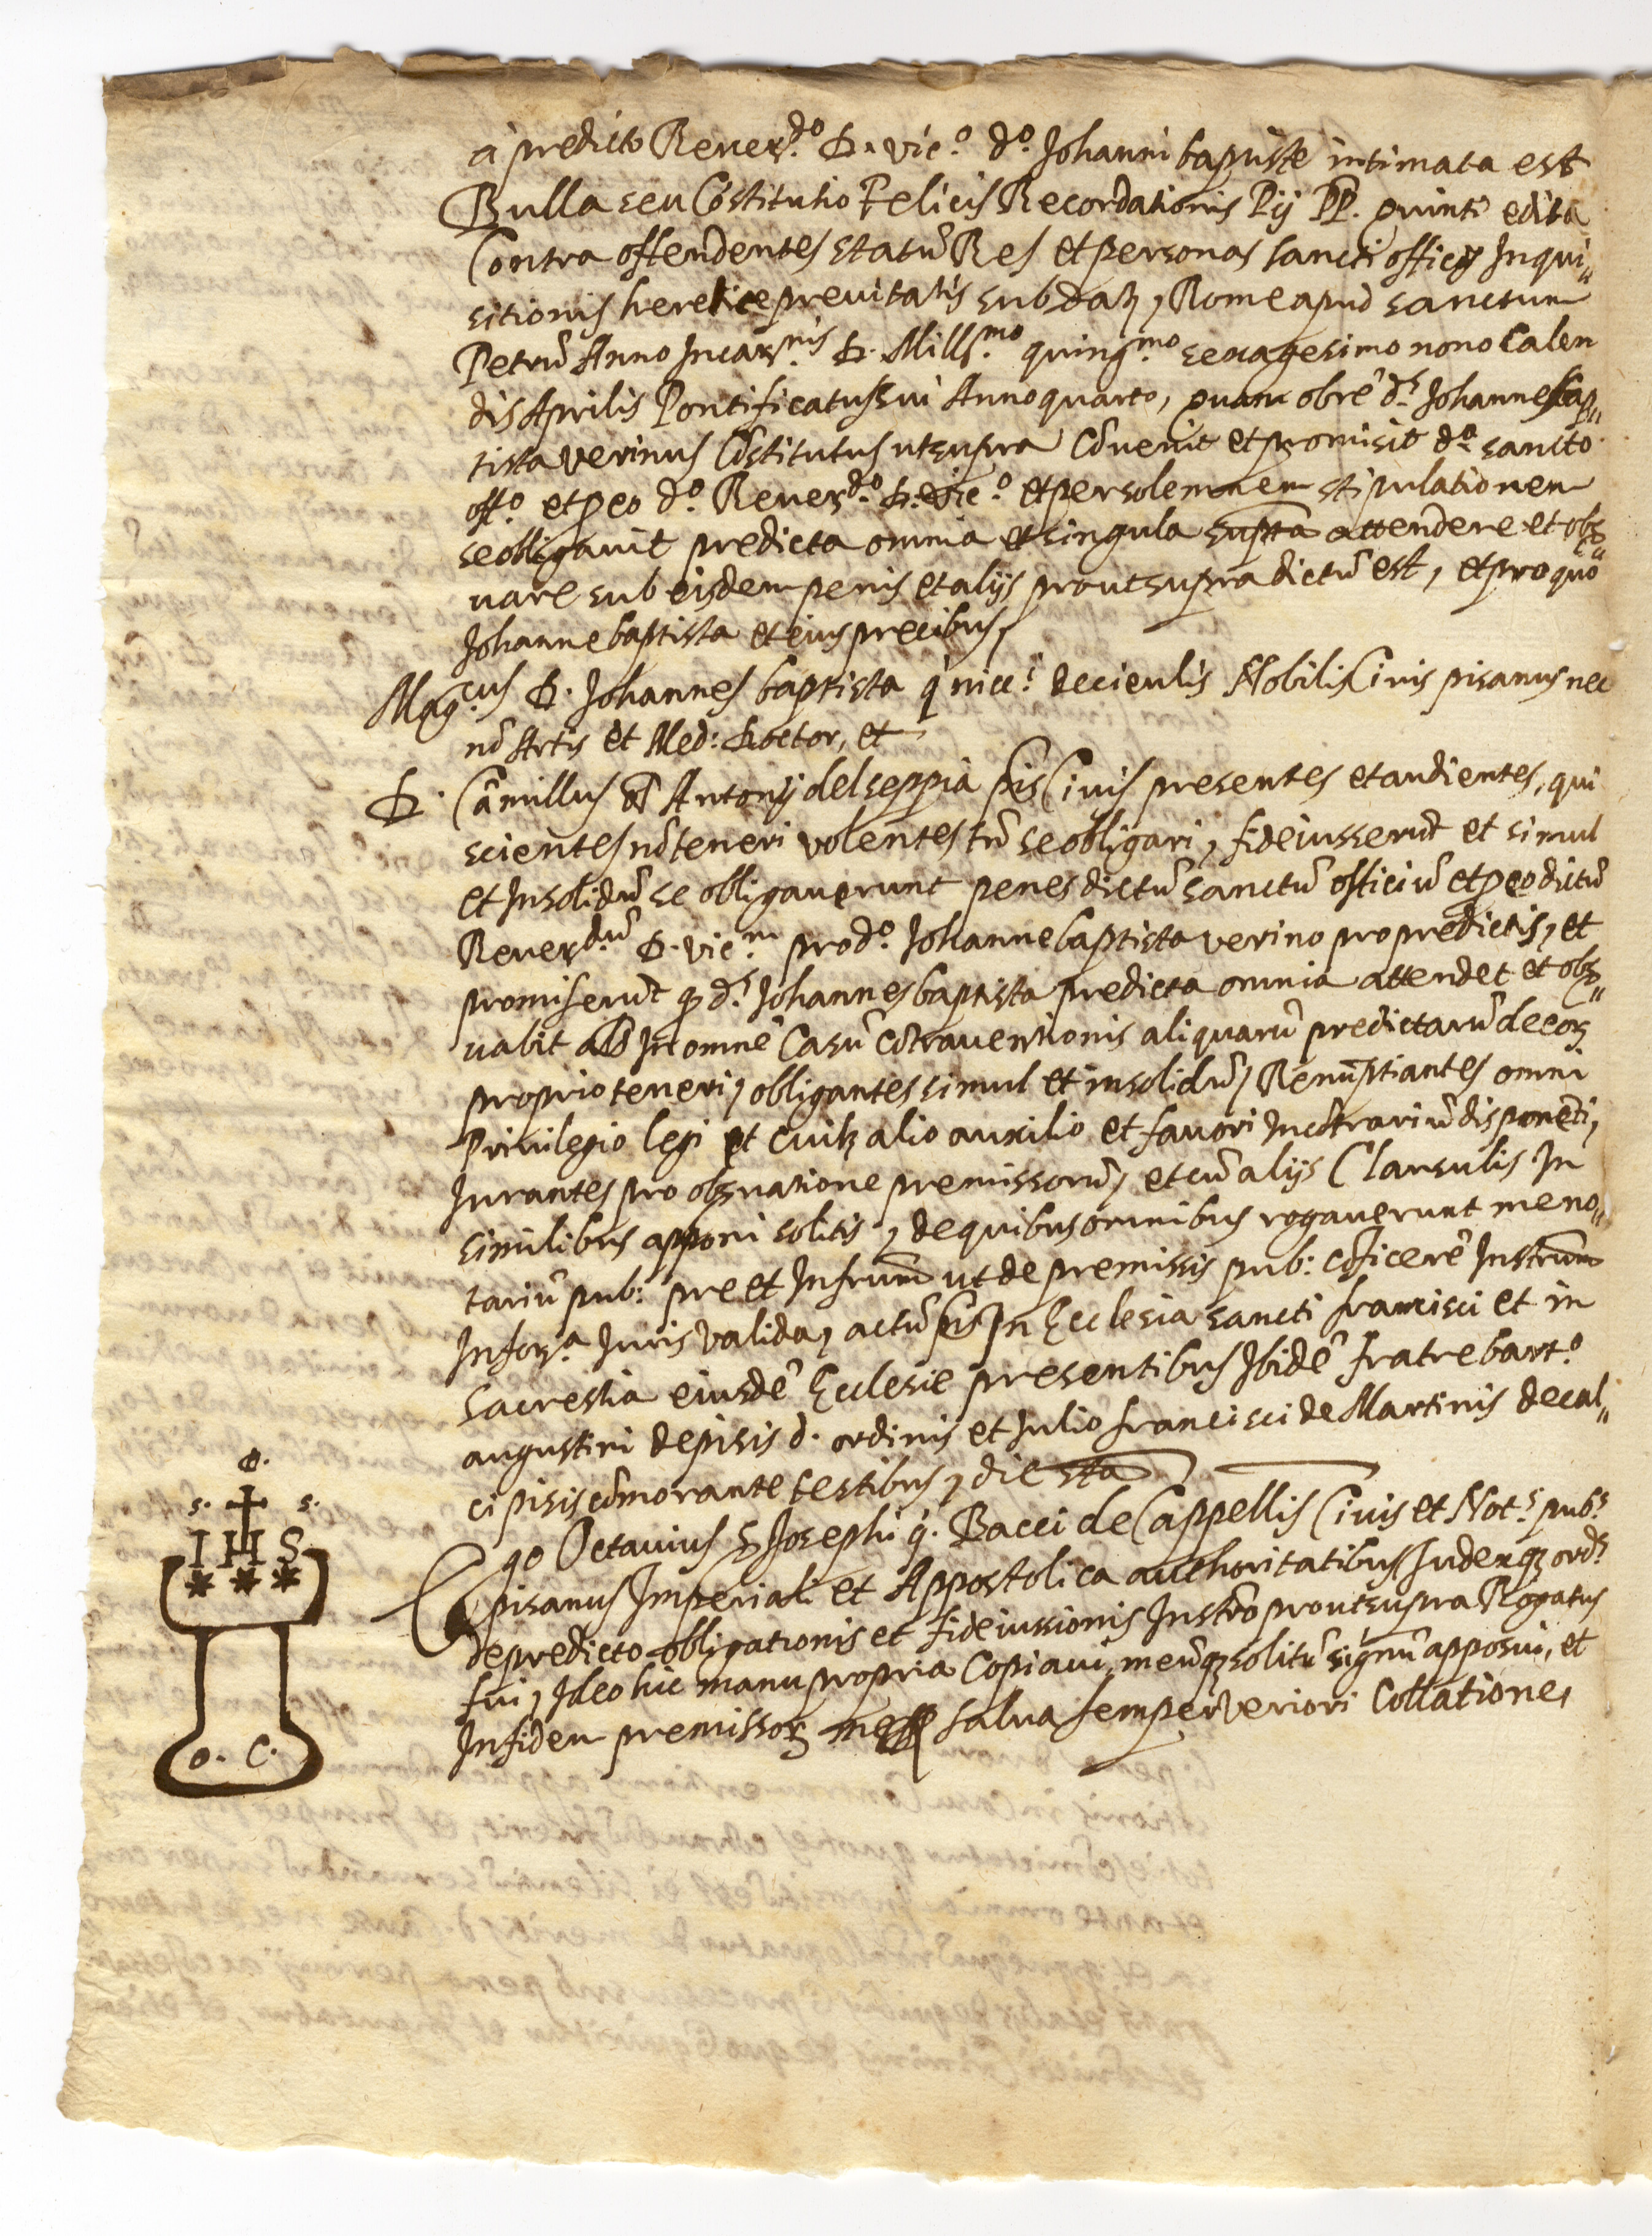 à predicto Reuerdo. D. vic.o d.o Johanni baptiste intimata est
Bulla seu Cōstitutio Felicis Recordationis Pij PP. quinti edita
Contra offendentes statū Res et personas sancti officij Inqui„
sitionis heretice prauitatis sub dat, Rome apud sanctum
Petrū Anno Incarnis D. Mills.mo quing.mo sexagesimo nono Calen
dis Aprilis Pontificatus sui Anno quarto, quam obrē d.s Johannes bap„
tista verinus Cōstitutus ut supra Cōuenit et promisit d.o sancto
off.o et p eo d.o Reuerdo. D. vic.o et per solemnem stipulationem
se obligauit predicta omnia et singula supta attendere et obs„
uare sub eisdem penis et alijs prout supra dictū est, et pro quo
Johanne baptista et eius precibus,
Mag.cus D. Johannes baptista q nicc.i de cieulis Nobilis Ciuis pisanus nec
nō Artis et Med: Doctor, et
D. Cāmillus Antonij del seppia pis Ciuis presentes et audientes, qui
scientes nō teneri volentes tn̄ se obligari, fideiusserūt et simul
et Insolidū se obligauerunt penes dictū sanctū officiū et p eo dictū
Reuerdū D. vic.m pro d.o Johanne baptista verino pro predictis, et
promiserūt q d.s Johannes baptista predicta omnia attendet et obs„
uabit als In omnē Casū cōtrauentionis aliquarū predictarū de eoz
proprio teneri, obligantes simul et insolidū, Renūptiantes omni
Priuilegio legi et cuilz alio auxilio et fauori Incōtrariū disponēti,
Iurantes pro obsuatione premissorū, et cū alijs Clausulis In
similibus apponi solitis, de quibus omnibus rogauerunt me no„
tariū pub: pre et Infrum ut de premissis pub: cōficerē Instrum
In for.a Iuris valida, actū pis In Ecclesia sancti francisci et in
sacrestia eiusdē Ecclesie presentibus Ibidē fratre bart.o
augustini de pisis d. ordinis et Iulio francisci de Martinis de cal„
ci pisis cōmorante testibus, die sta
Ego Octauius S Josephi q. Bacci de Cappellis Ciuis et Not.s pub.s
pisanus Imperiali et Appostolica authoritatibus Iudexqz ord.s
de predicto obligationis et fideiussionis Instro prout supra Rogatus
fui, Ideo hic manu propria Copiaui, meūqz solitū signū apposui, et
In fidem premissoz salua semper veriori Collatione,
C.
S. S.
IHS
O. C.